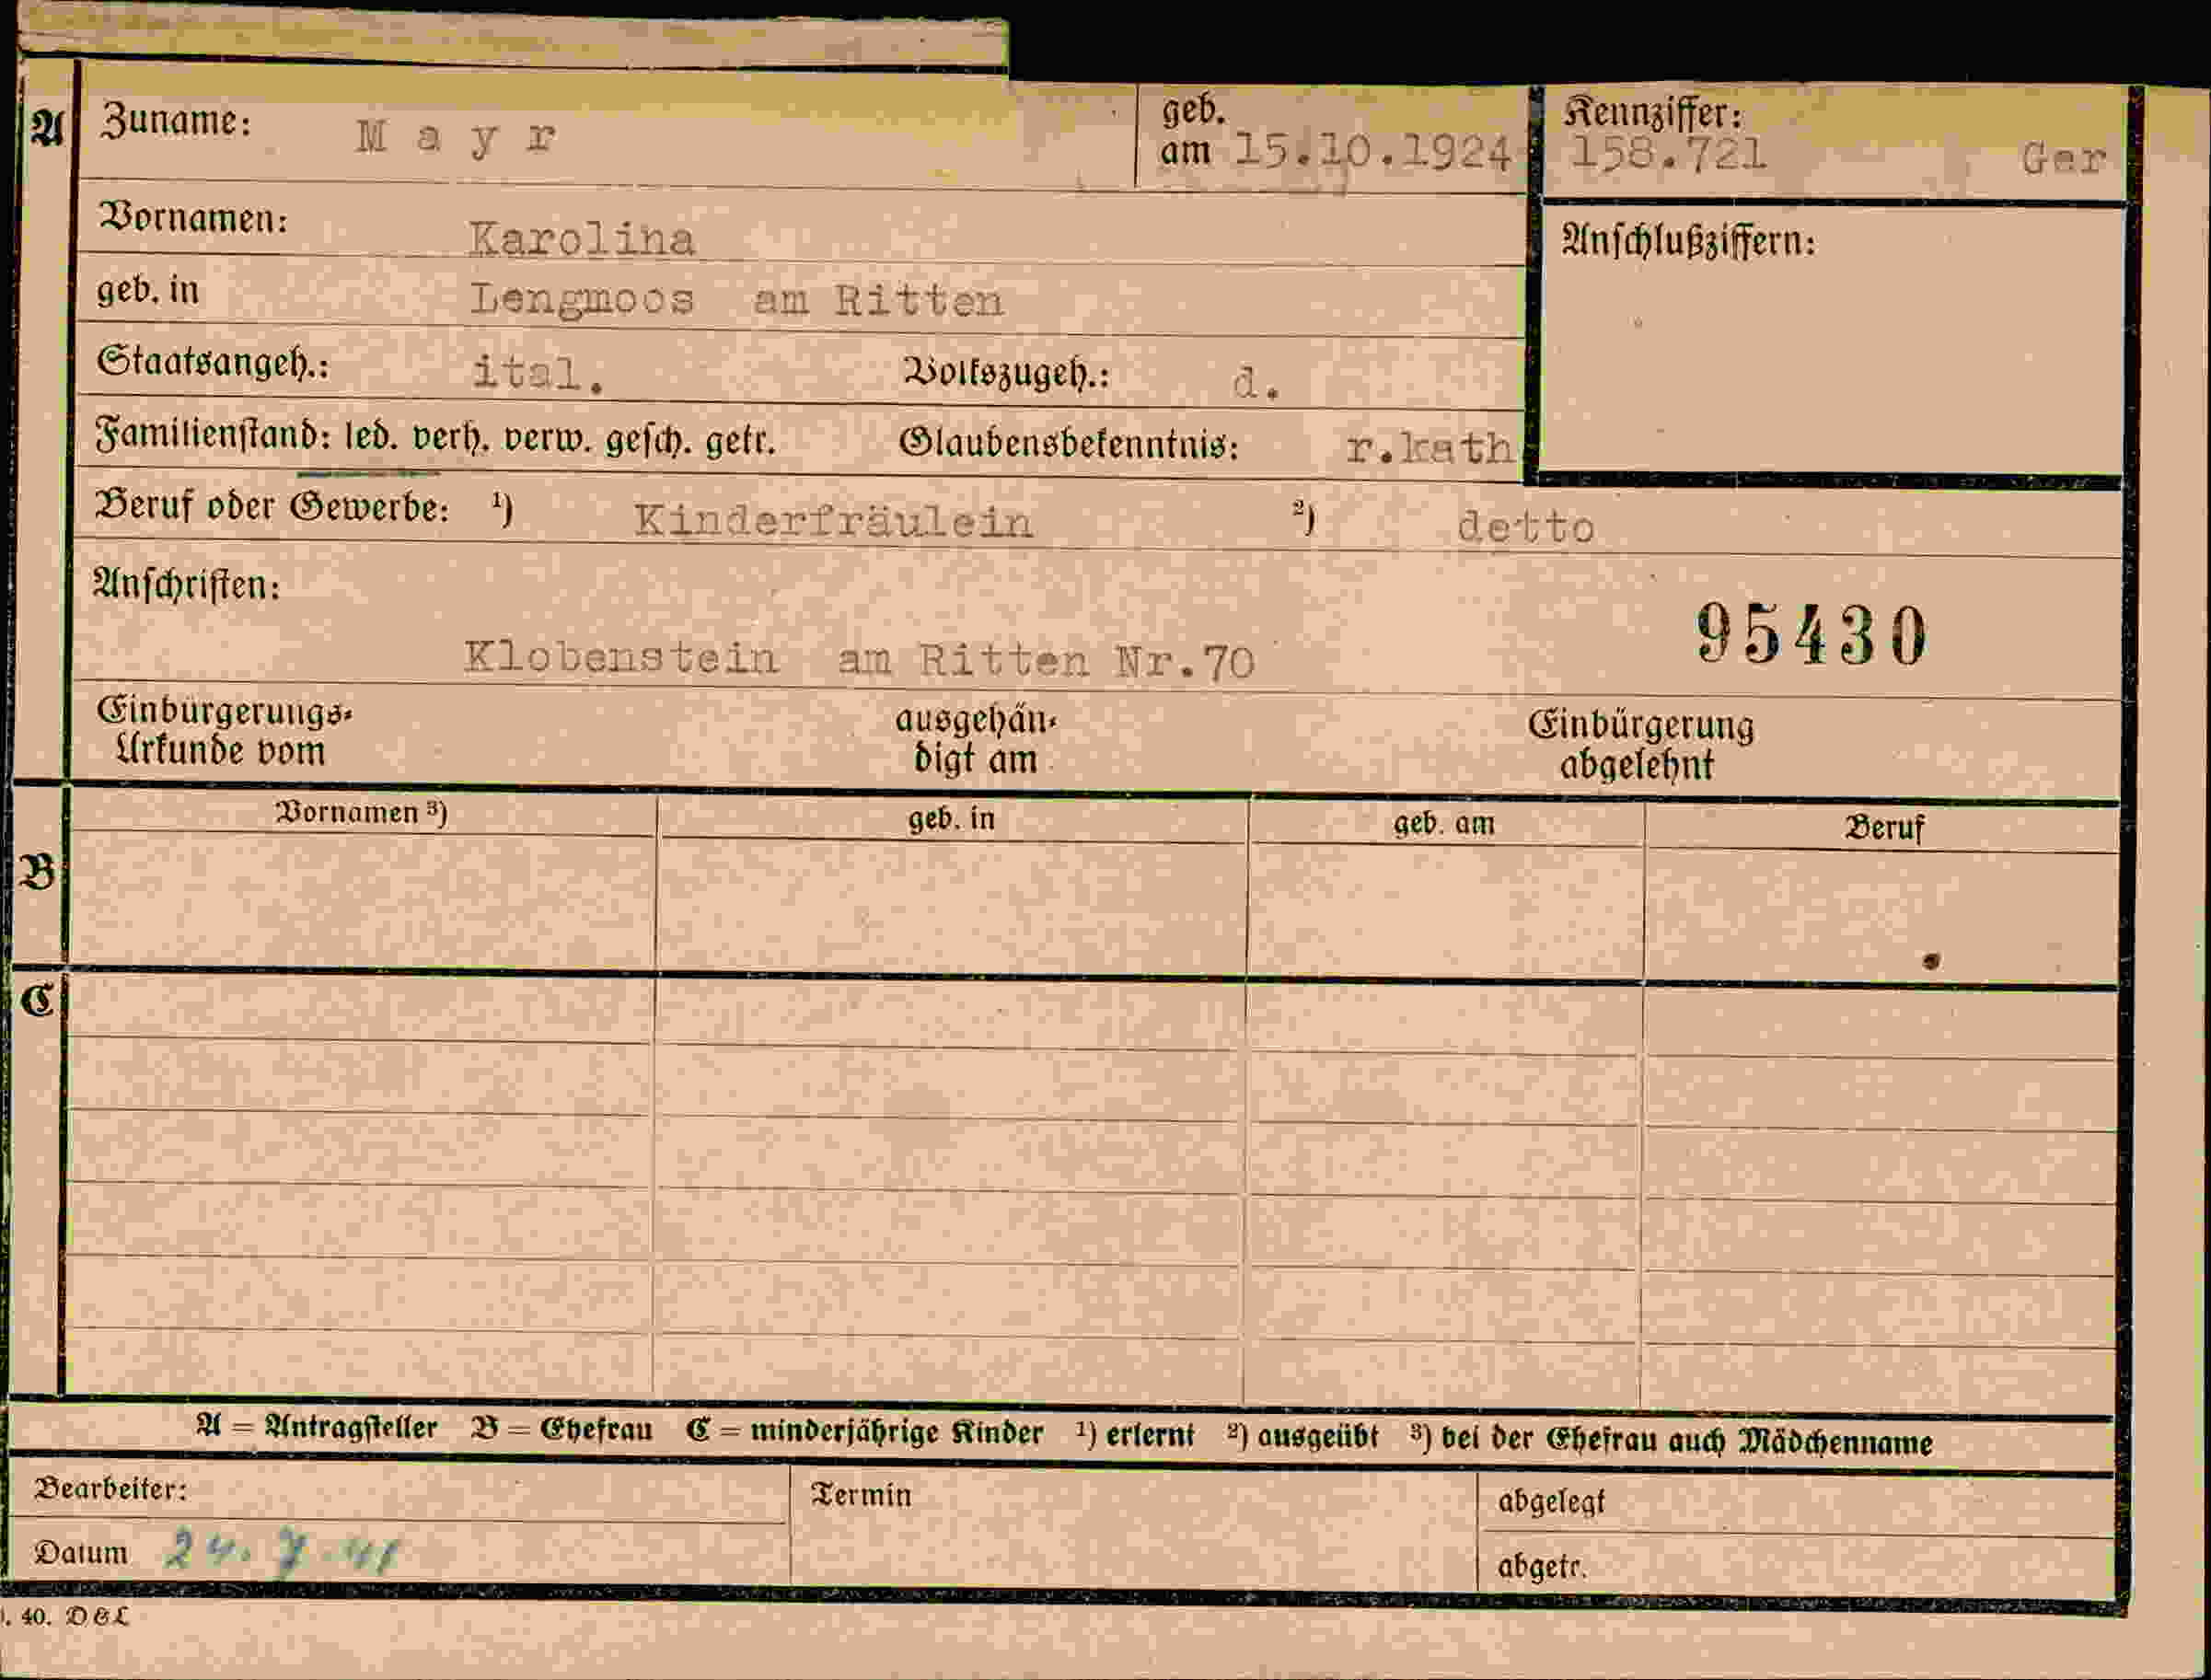 A Zuname: Mayr geb. am 15.10.1924 Kennziffer: 158.721 Ger
Vornamen: Karolina Anschlußziffern:
geb. in Lengmoos am Ritten
Staatsangeh.: ital. Volkszugeh.: d.
Familienstand: led. verh. verw. gesch. getr. Glaubensbekenntnis: r.kath
Beruf oder Gewerbe: 1) Kinderfräulein 2) detto
Anschriften:
95430
Klobenstein am Ritten Nr.70
Einbürgerungs-Urkunde vom ausgehändigt am Einbürgerung abgelehnt
B Vornamen 3) geb. in geb. am Beruf
C
A = Antragsteller B = Ehefrau C = minderjährige Kinder 1) erlernt 2) ausgeübt 3) bei der Ehefrau auch Mädchenname
Bearbeiter: Termin abgelegt
Datum 24.7.41 abgetr.
40. DGL